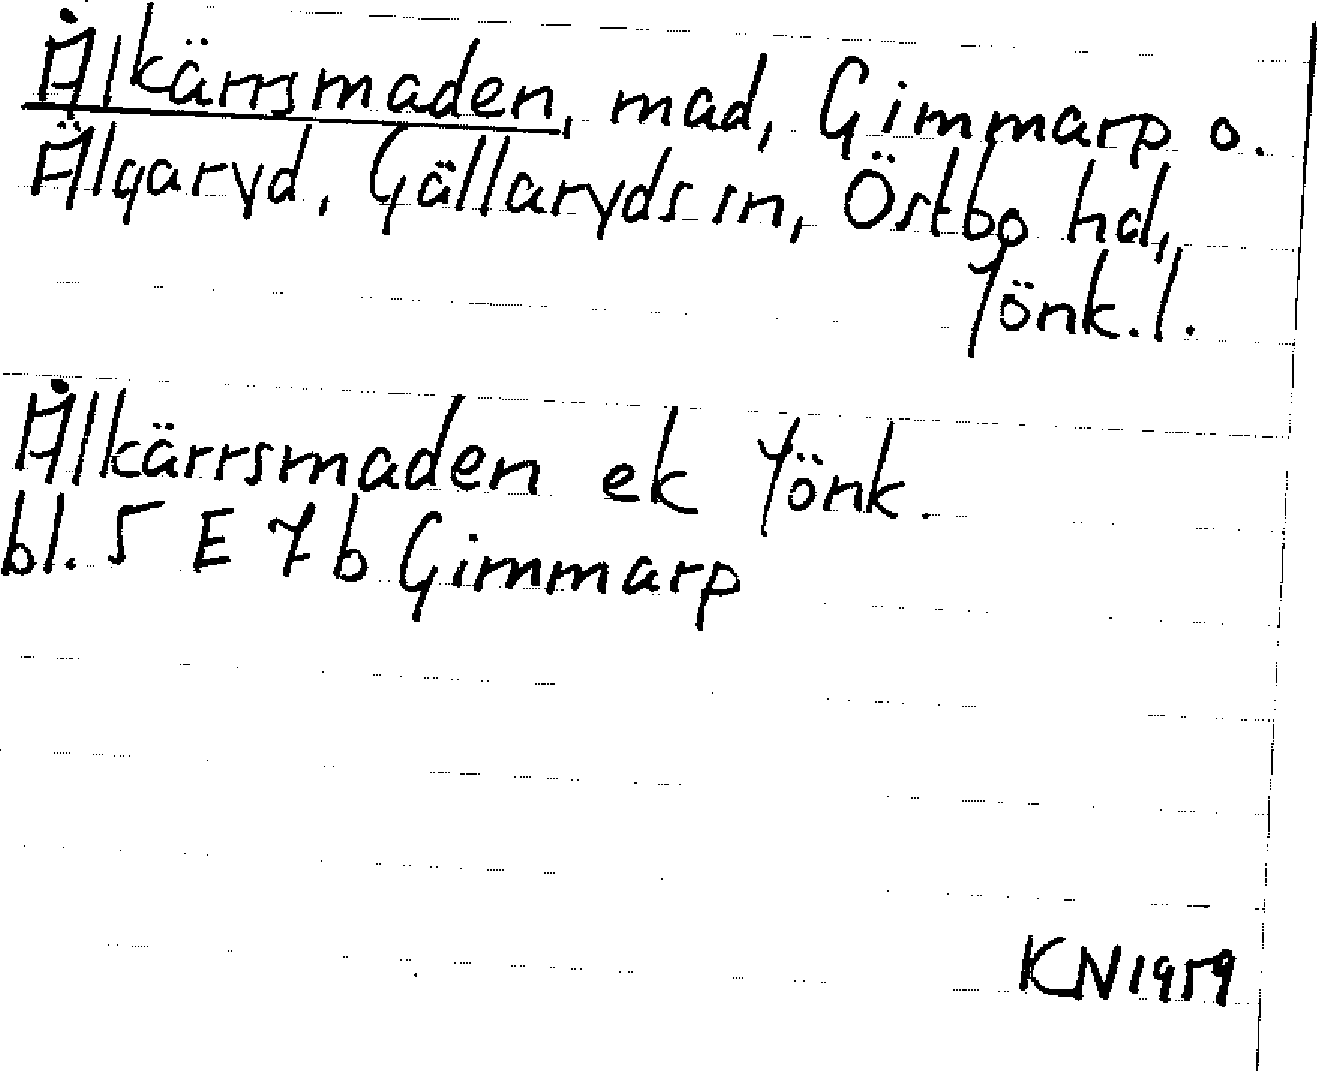 Ålkärrsmaden, mad, Gimmarp o.
Älgaryd, Gällaryds sn, Östbo hd,
Jönk.l.
Ålkärrsmaden ek Jönk.
bl. 5 E 7 b Gimmarp
KN1959